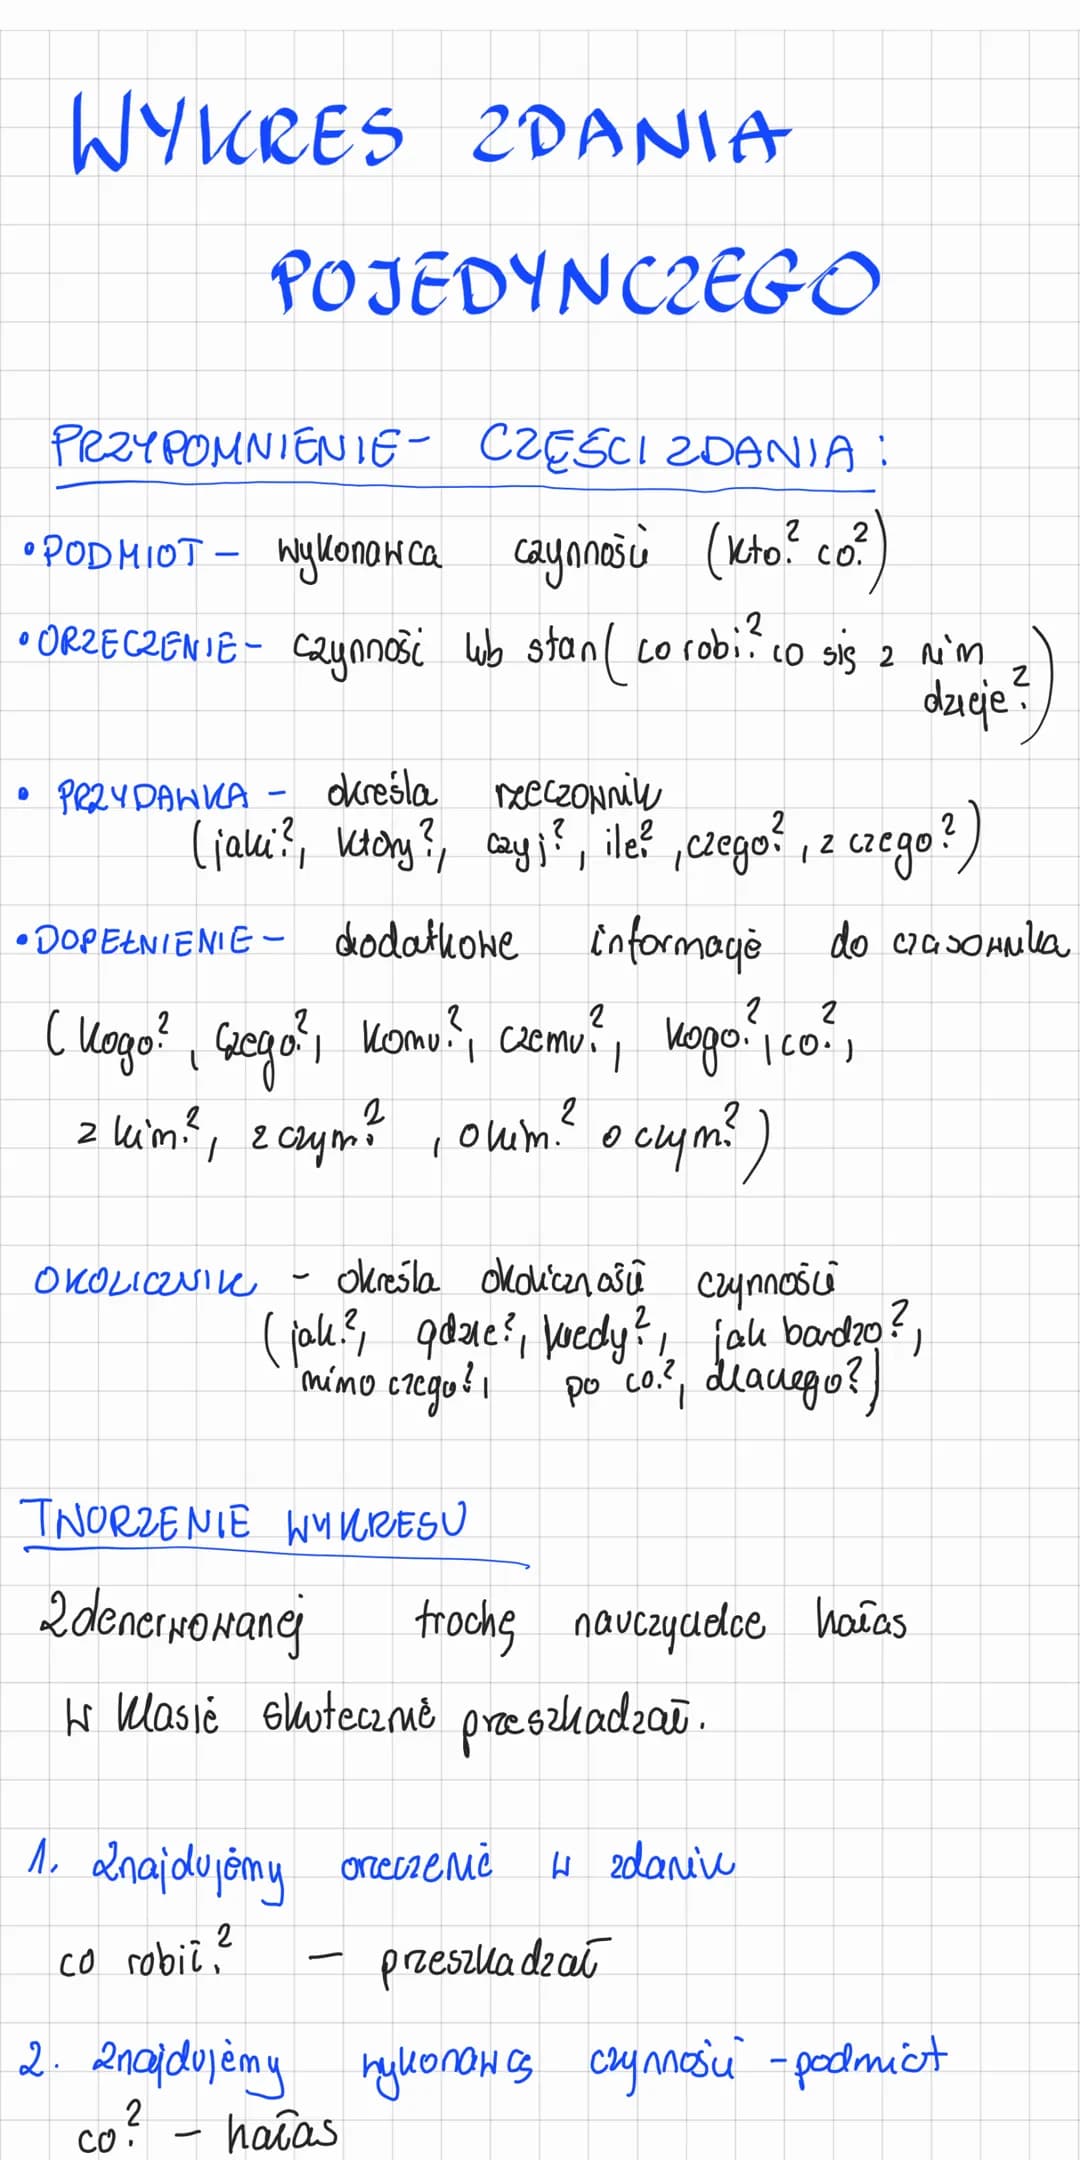 WYKRES ZDANIA
POJEDYNCZEGO
PRZYPOMNIENIE - CZĘŚCI ZDANIA:
• PODMIOT - wykonawca czynności (kto? co?)
• ORZECZENIE - czynność lub stan (co robi? co się z nim
dzieje?)
• PRZYDAWKA - określa rzeczownik
(jaki?, który?, czyj?, ile?, czego?, z czego?)
• DOPEŁNIENIE - dodatkowe informacje do czasownika
(kogo?, czego?, komu?, czemu?, kogo?, co?,
z kim?, z czym?, o kim? o czym?)
OKOLICZNIK - określa okoliczności czynności
(jak?, gdzie?, kiedy?, jak bardzo?,
mimo czego?, po co?, dlaczego?)
TWORZENIE WYKRESU
Zdenerwowanej trochę nauczycielce hałas
w klasie skutecznie przeszkadzał.
1. Znajdujemy orzeczenie w zdaniu
co robił? - przeszkadzał
2. Znajdujemy wykonawcę czynności - podmiot
co? - hałas